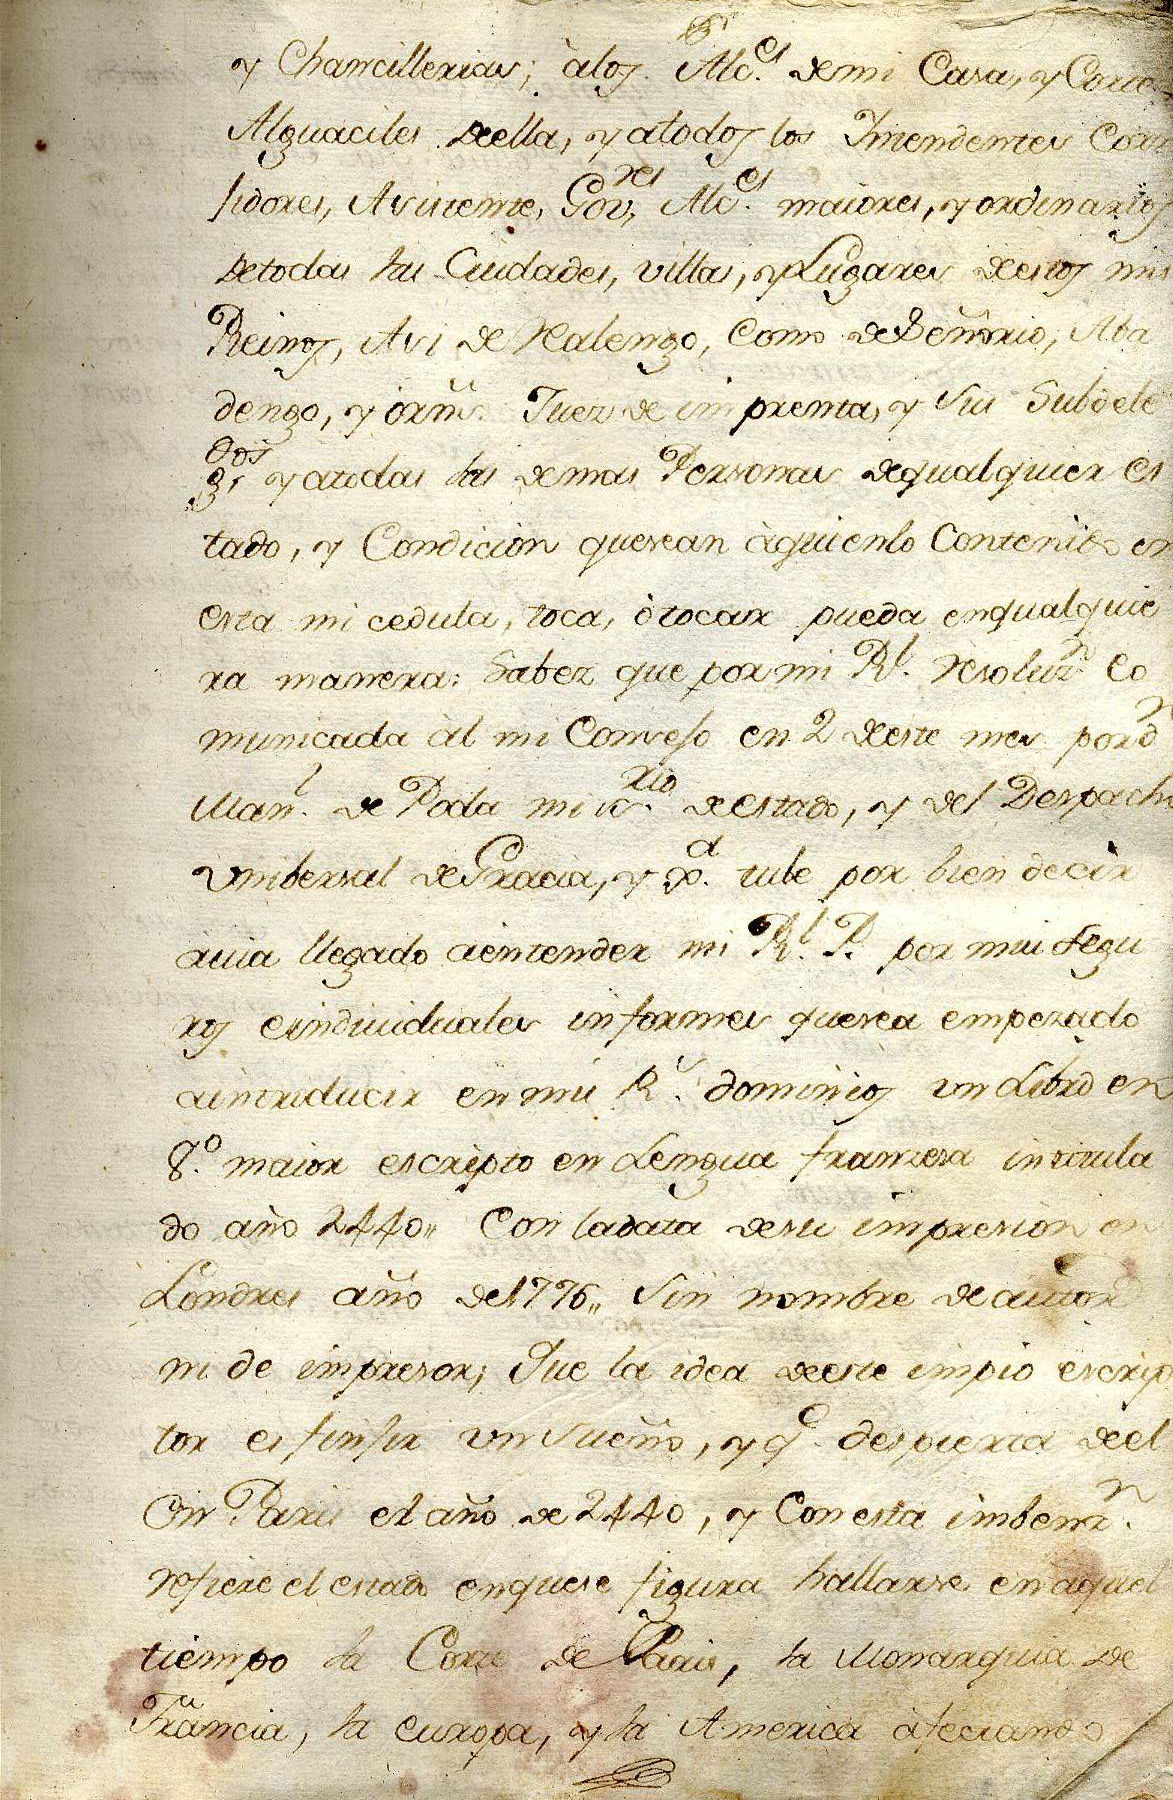 y Chancillerias; àlos Alc.es de mi Casa, y Corte
Alguaciles deella, y atodos los Yntendentes Corre
jidores, Asistente, Gov.res Alc.es maiores, y ordinarios
detodas las Ciudades, villas, y Lugares destos mis
Reinos, Asi de Realengo, Como deSeñorio, Aba
dengo, y orñs. Juez de imprenta, y Sus Subdele
g.dos y atodas las demas Personas dequalquier es
tado, y Condicion quesean àquien lo Contenido en
esta mi cedula, toca, òtocar pueda enqualquie
ra manera: Sabez que por mi R.l resoluz.n Co
municada àl mi Consejo en 2 deeste mes por d.n
Man.l de Roda mi S.rio deestado, y del Despacho
Vnibersal deGracia, y Jus.a tube por bien decir
avia llegado àentender mi R.l P. por mui segu
ros eindividuales informes quesea empezado
aintriducir en mis R.s dominios un Libro en
8.º maior escripto en Lengua franzesa intitula
do año 2440,, Con ladata desu impresion en
Londres año de1776,, Sin nombre deautor
ni de impresor; Que la idea deeste impio escrip
tor es finjir vn Sueño, y q.e despierta deel
en Paris el año de 2440, y Con esta imbenz.n
refiere el estado enquese figura hallarse en aquel
tiempo la Corte de Paris, la Monarquia de
Francia, la europa, y la America afectando